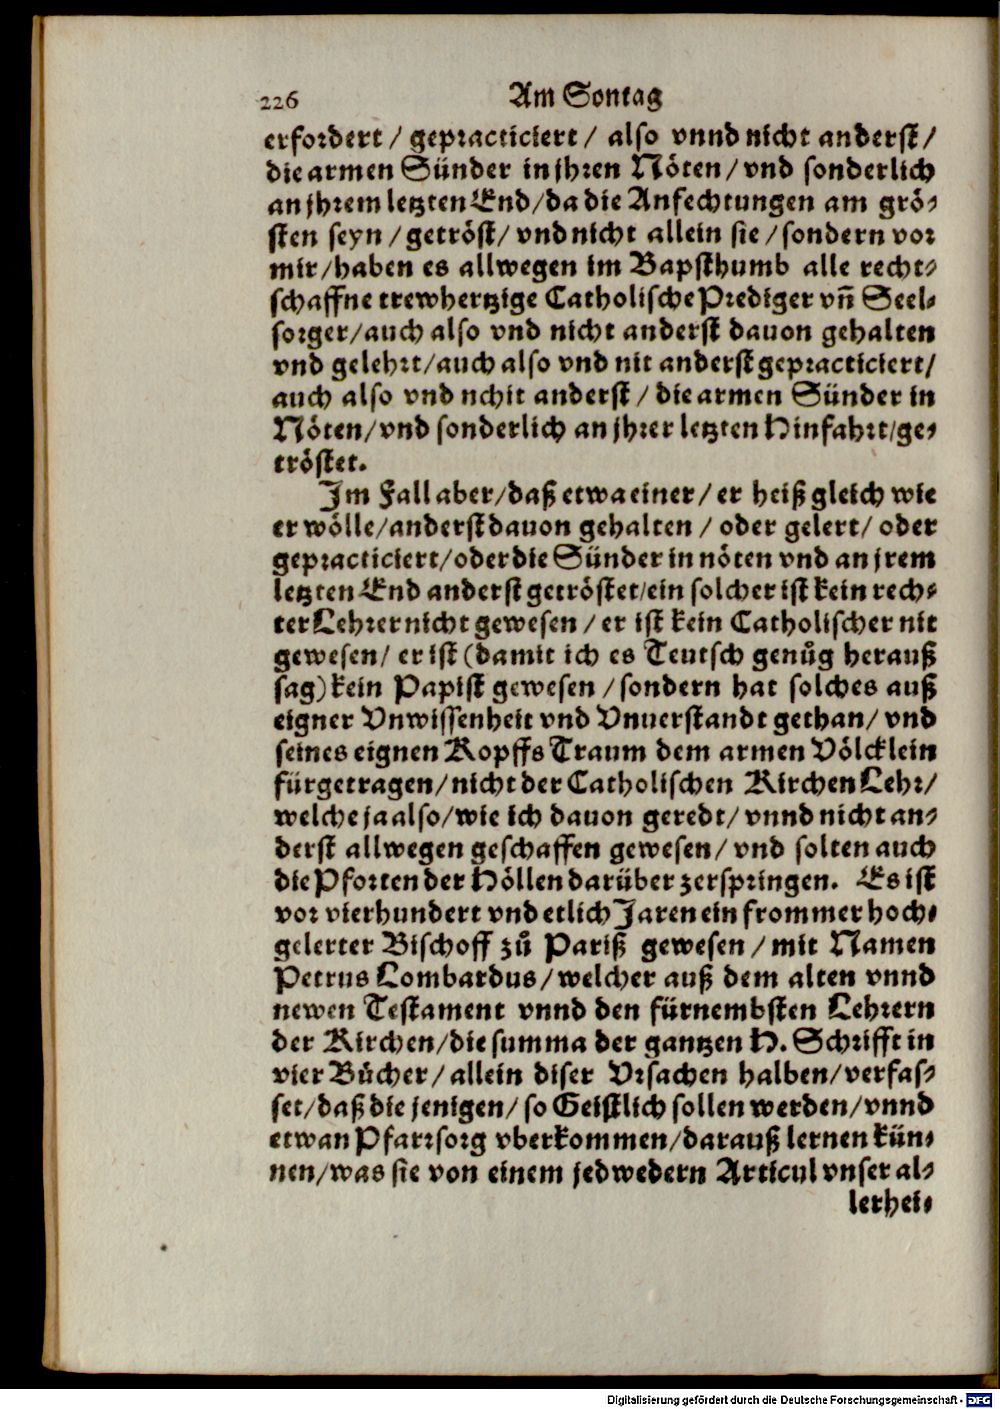 226 Am Sontag
erfordert / gepracticiert / also vnnd nicht anderst /
die armen Sünder in jhren Nöten / vnd sonderlich
an jhrem letzten End / da die Anfechtungen am grö-
sten seyn / getröst / vnd nicht allein sie / sondern vor
mir / haben es allwegen im Bapsthumb alle recht-
schaffne trewhertzige Catholische Prediger vñ Seel-
sorger / auch also vnd nicht anderst dauon gehalten
vnd gelehrt / auch also vnd nit anderst gepracticiert /
auch also vnd nchit anderst / die armen Sünder in
Nöten / vnd sonderlich an jhrer letzten Hinfahrt / ge-
tröstet.
Im Fall aber / daß etwa einer / er heiß gleich wie
er wölle / anderst dauon gehalten / oder gelert / oder
gepracticiert / oder die Sünder in nöten vnd an jrem
letzten End anderst getröstet / ein solcher ist kein rech-
ter Lehrer nicht gewesen / er ist kein Catholischer nit
gewesen / er ist (damit ich es Teutsch genůg herauß
sag) kein Papist gewesen / sondern hat solches auß
eigner Vnwissenheit vnd Vnuerstandt gethan / vnd
seines eignen Kopffs Traum dem armen Völcklein
fürgetragen / nicht der Catholischen Kirchen Lehr /
welche ja also / wie ich dauon geredt / vnnd nicht an-
derst allwegen geschaffen gewesen / vnd solten auch
die Pforten der Höllen darüber zerspringen. Es ist
vor vierhundert vnd etlich Jaren ein frommer hoch-
gelerter Bischoff zů Pariß gewesen / mit Namen
Petrus Lombardus / welcher auß dem alten vnnd
newen Testament vnnd den fürnembsten Lehrern
der Kirchen / die summa der gantzen H. Schrifft in
vier Bücher / allein diser Vrsachen halben / verfas-
set / daß die jenigen / so Geistlich sollen werden / vnnd
etwan Pfarrsorg vberkommen / darauß lernen kün-
nen / was sie von einem jedwedern Articul vnser al-
lerhei-
Digitalisierung gefördert durch die Deutsche Forschungsgemeinschaft - DFG